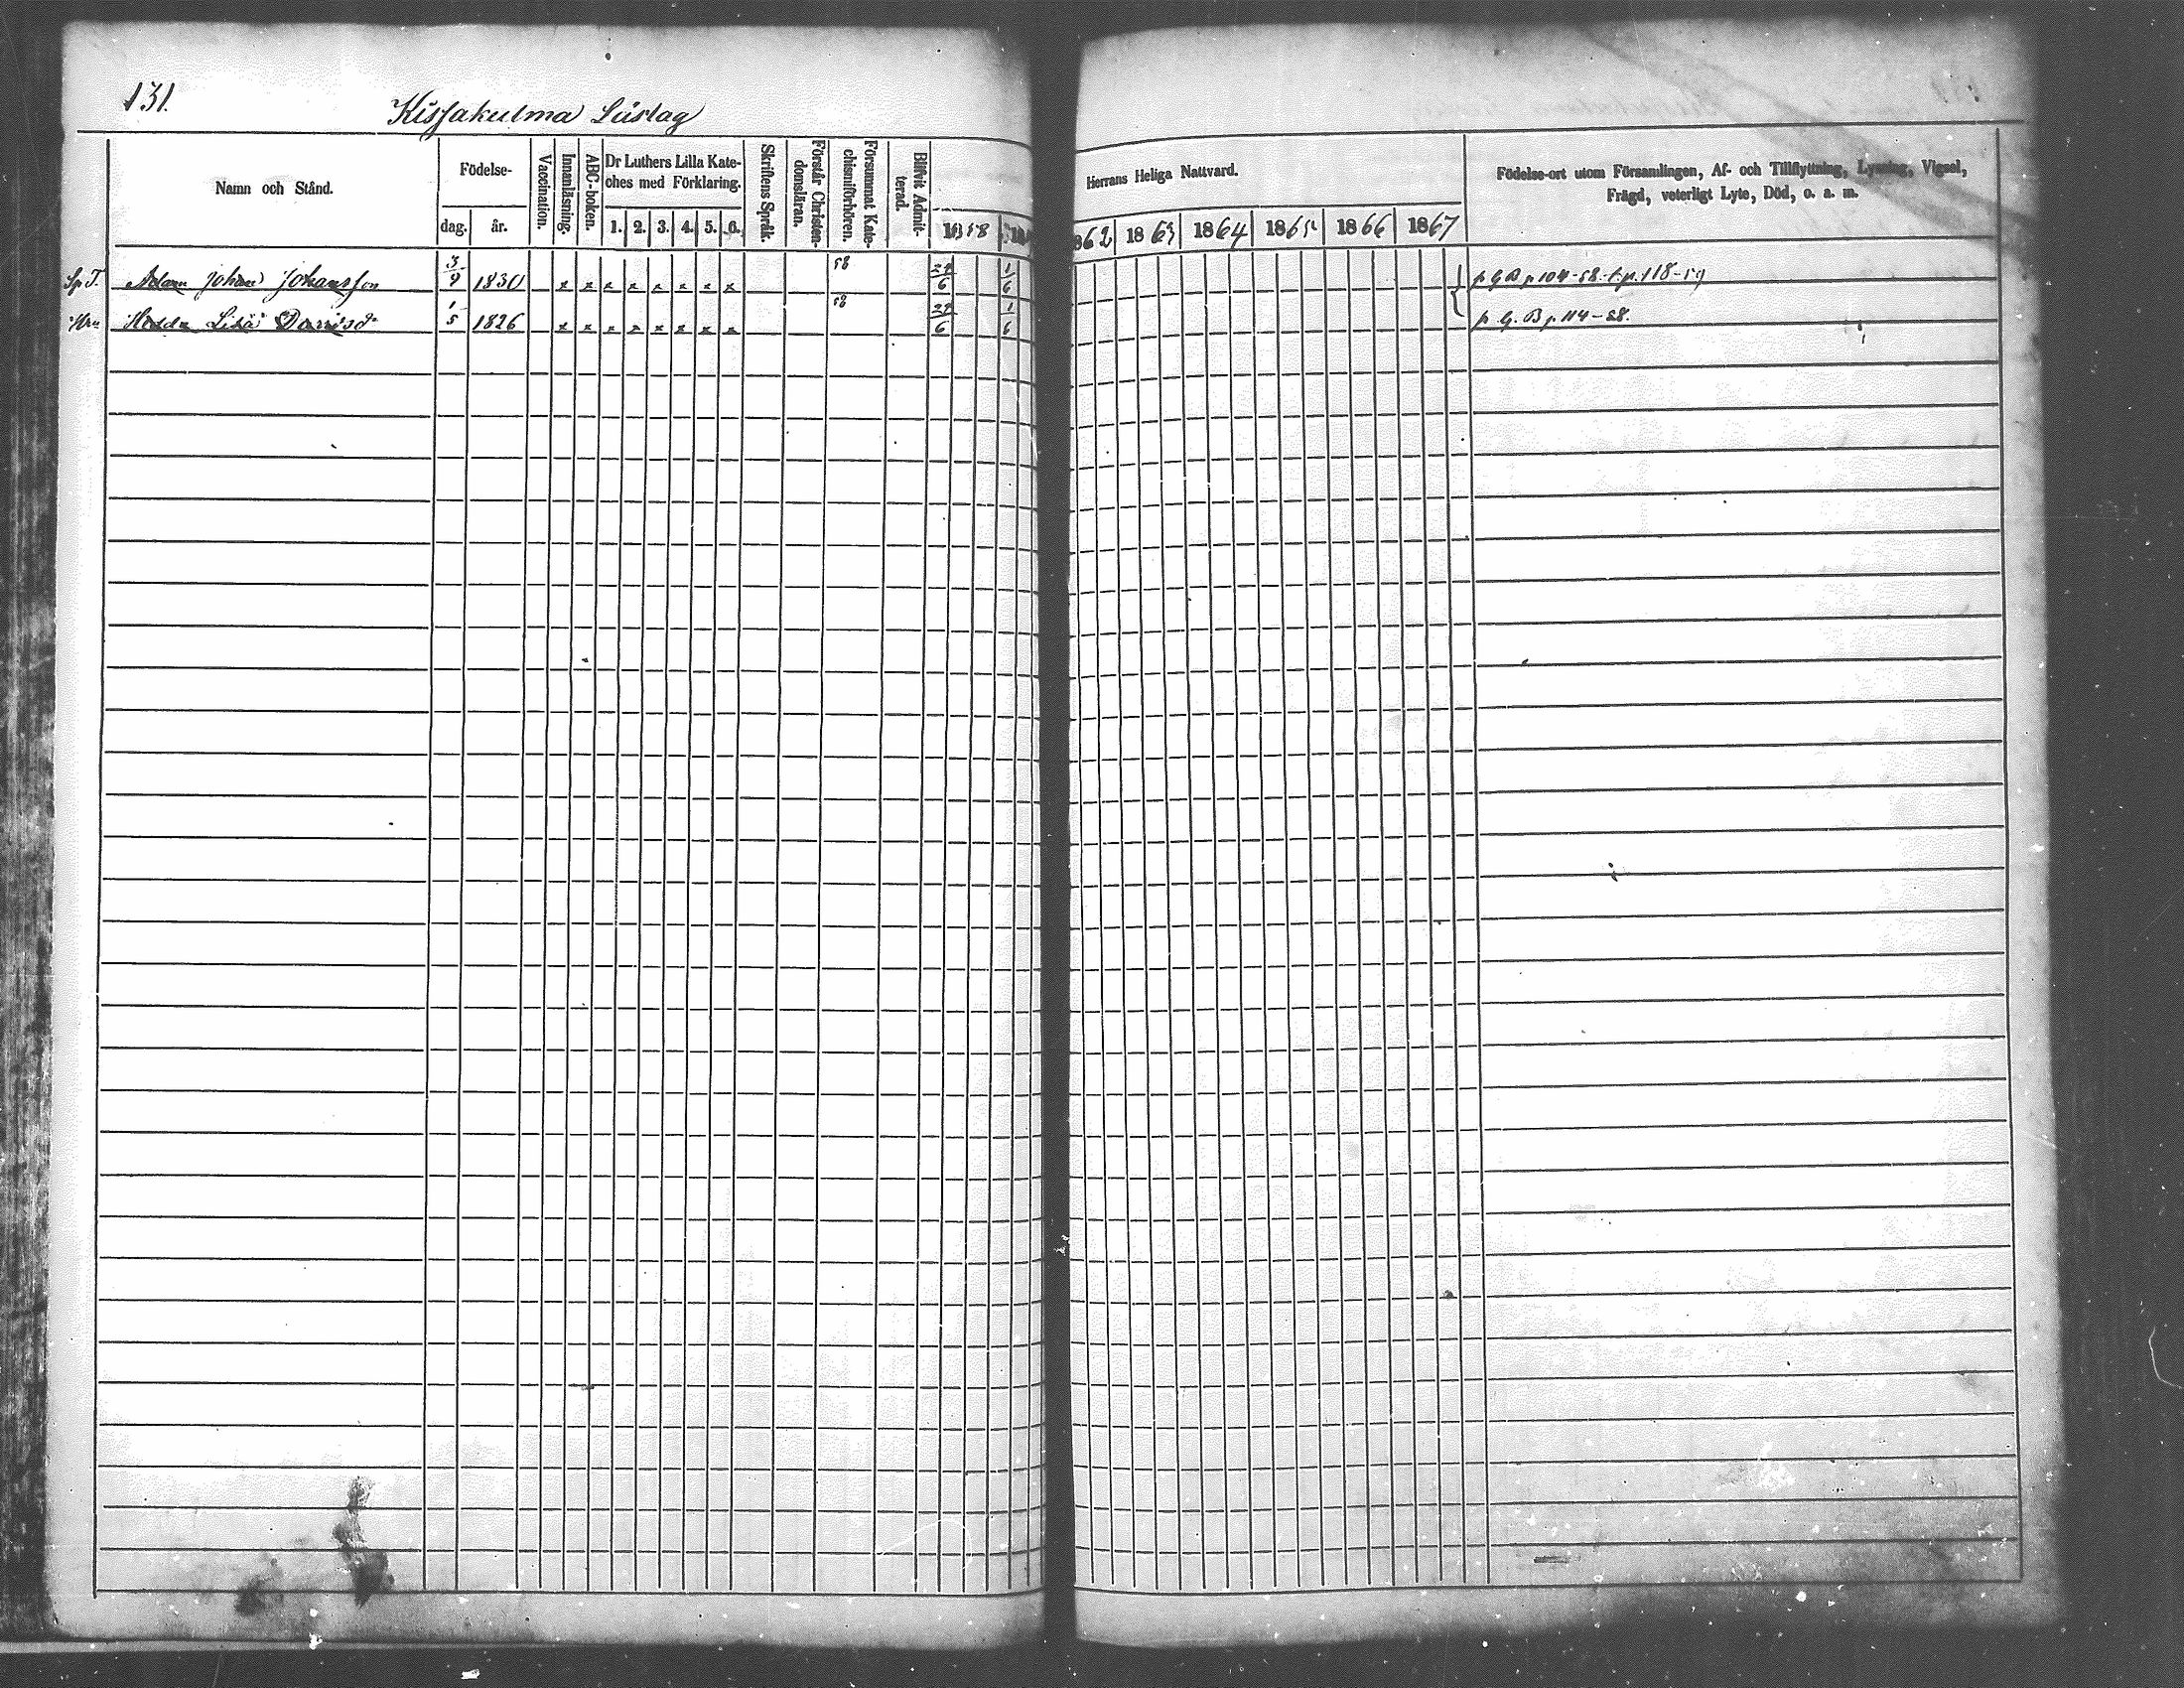 131.
Kissakulma Lüstag
Namn och Stånd.
Födelse-
dag.
år.
Vaccination.
Innanläsning.
ABC-boken.
Dr Luthers Lilla Kate-
ches med Förklaring.
1. 2. 3. 4. 5. 6.
Skriftens Språk.
Förstår Christen-
domsläran.
Försummat Kate-
chismiförhören.
Blifvit Admit-
terad.
Herrans Heliga Nattvard.
1858
862 1863 1864 1865 1866 1867
Födelse-ort utom Församlingen, Af- och Tillflyttning, Lysning, Vigsel,
Frägd, veterligt Lyte, Död, o. a. m.
Sp T. Adam Johan Johansson 3/9 1830 x x x x x x x x 58 24/6 1/6 p G B p 104-58. t. p. 118-59
Hu Hedda Lisa 1/5 1826 x x x x x x x x 58 24/6 1/6 p. G. B p 114-58.